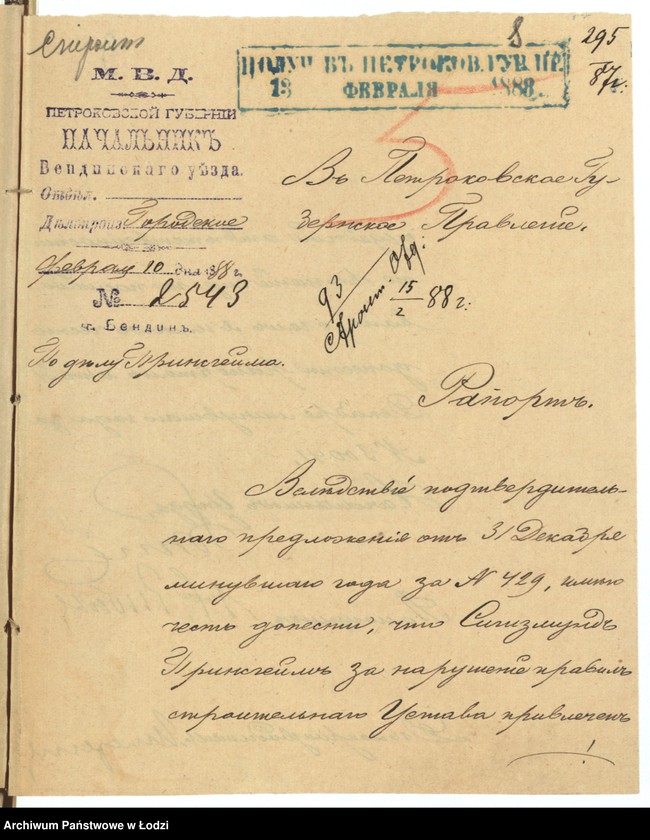 8
295
87 г.
ПОЛУЧ. ВЪ ПЕТРОКОВ. ГУБ. ПР.
13 ФЕВРАЛЯ 1888 г.
М. В. Д.
ПЕТРОКОВСКОЙ ГУБЕРНІИ
НАЧАЛЬНИКЪ
Бендинскаго уѣзда.
Отдѣл.
Дѣлопроиз. Городское
февраля 10 дня 1888 г.
№ 2543
г. Бендинъ.
По дѣлу Прингсгейма.
Въ Петроковское Гу-
бернское Правленіе.
93
15/2 88 г.
Рапортъ.
Вслѣдствіе подтвердитель-
наго предложенія отъ 31 Декабря
минувшаго года за № 429, имѣю
честь донести, что Сигизмундъ
Прингсгеймъ за нарушеніе правилъ
строительнаго Устава привлеченъ
Archiwum Państwowe w Łodzi